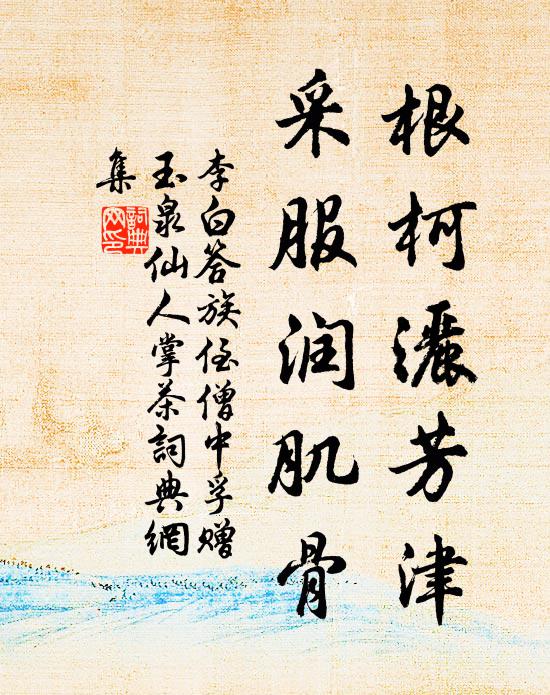 根柯灑芳津
采服润肌骨
李白答族侄僧中孚赠
玉泉仙人掌茶詞典網
集
詞典网印